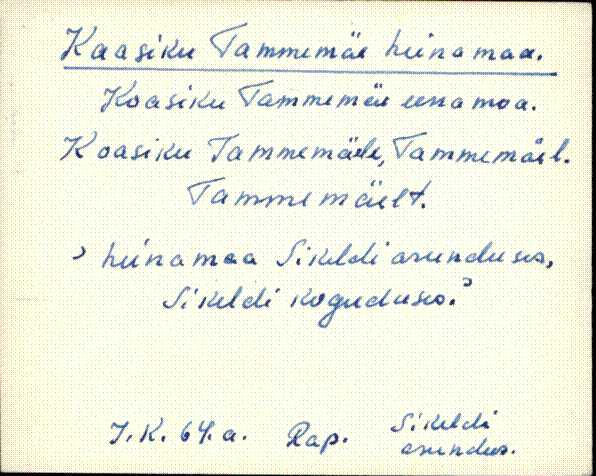 Kaasiku Tammemäe heinamaa.
Koasiku Tammemäe eenamoa.
Koasiku Tammemäele, Tammemäel.
Tammemäelt.
› heinamaa Sikeldi asunduses,
Sikeldi koguduses.›
J.K. 64.a. Rap. Sikeldi
asundus.